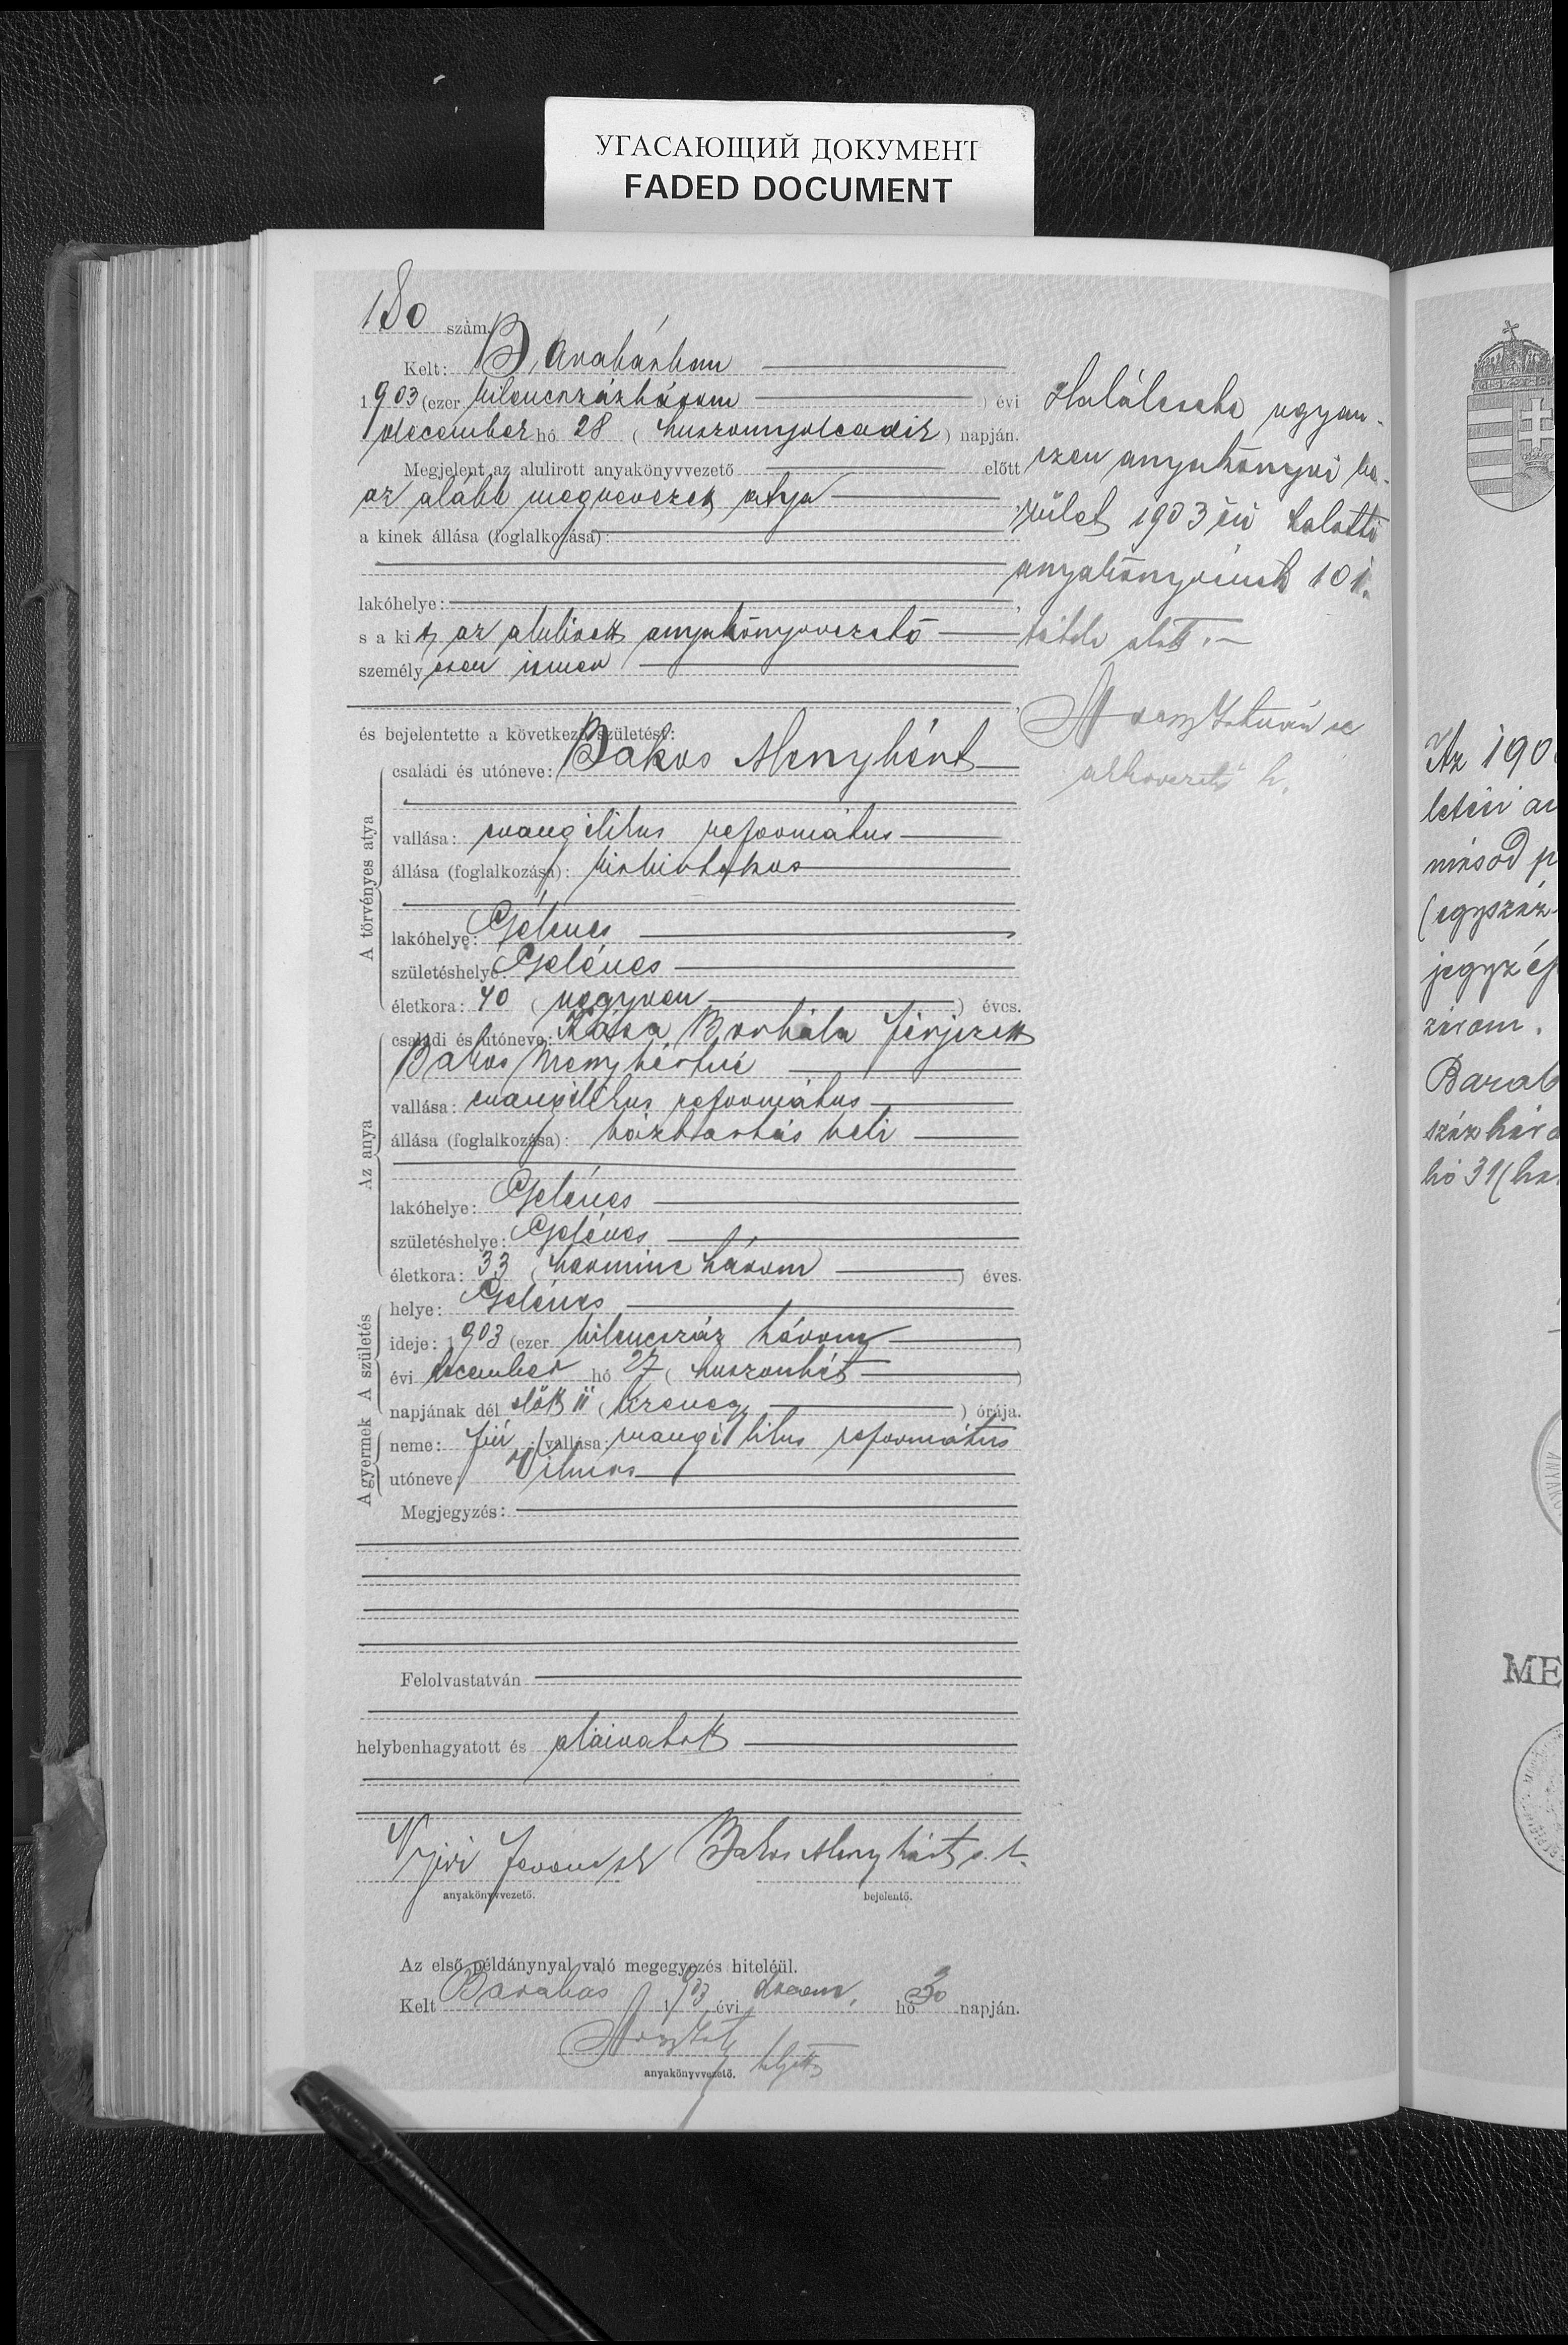 УГАСАЮЩИЙ ДОКУМЕНТ
FADED DOCUMENT
180 szám.
Kelt: Barabásban
1903 (ezer kilencszázhárom ) évi
december hó 28 ( huszonnyolcadik ) napján.
Megjelent az alulirott anyakönyvvezető előtt
az alább megnevezett atya
a kinek állása (foglalkozása):
lakóhelye:
s a kit az alulirott anyakönyvvezető
személyesen ismer
és bejelentette a következő születést:
A törvényes atya
családi és utóneve: Bakos Menyhért
vallása: evangélikus református
állása (foglalkozása): kisbirtokos
lakóhelye: Gelénes
születéshelye: Gelénes
életkora: 40 ( negyven ) éves.
Az anya
családi és utóneve: Kósa Borbála férjezett
Bakos Menyhértné
vallása: evangélikus református
állása (foglalkozása): háztartásbeli
lakóhelye: Gelénes
születéshelye: Gelénes
életkora: 33 ( harminchárom ) éves.
A születés
helye: Gelénes
ideje: 1903 (ezer kilencszáz három )
évi december hó 27 ( huszonhét )
napjának dél előtt 11 ( tizenegy ) órája.
A gyermek
neme: fiú vallása: evangélikus református
utóneve: Vilmos
Megjegyzés:
Felolvastatván
helybenhagyatott és aláiratott
Ferencz sk Bakos Menyhért s. k.
anyakönyvvezető. bejelentő.
Az első példánynyal való megegyezés hiteléül.
Kelt Barabás 1903 évi decem. hó 30 napján.
anyakönyvvezető. helyettes
Halálesete ugyan-
ezen anyakönyvi ke-
rület 1903 évi halotti
anyakönyvének 101.
tétele alatt.
István
h.
Az 190
letési an
másod p
(egyszáz
jegyzés
zárom.
Barab
száz háro
hó 31 (ha
ME